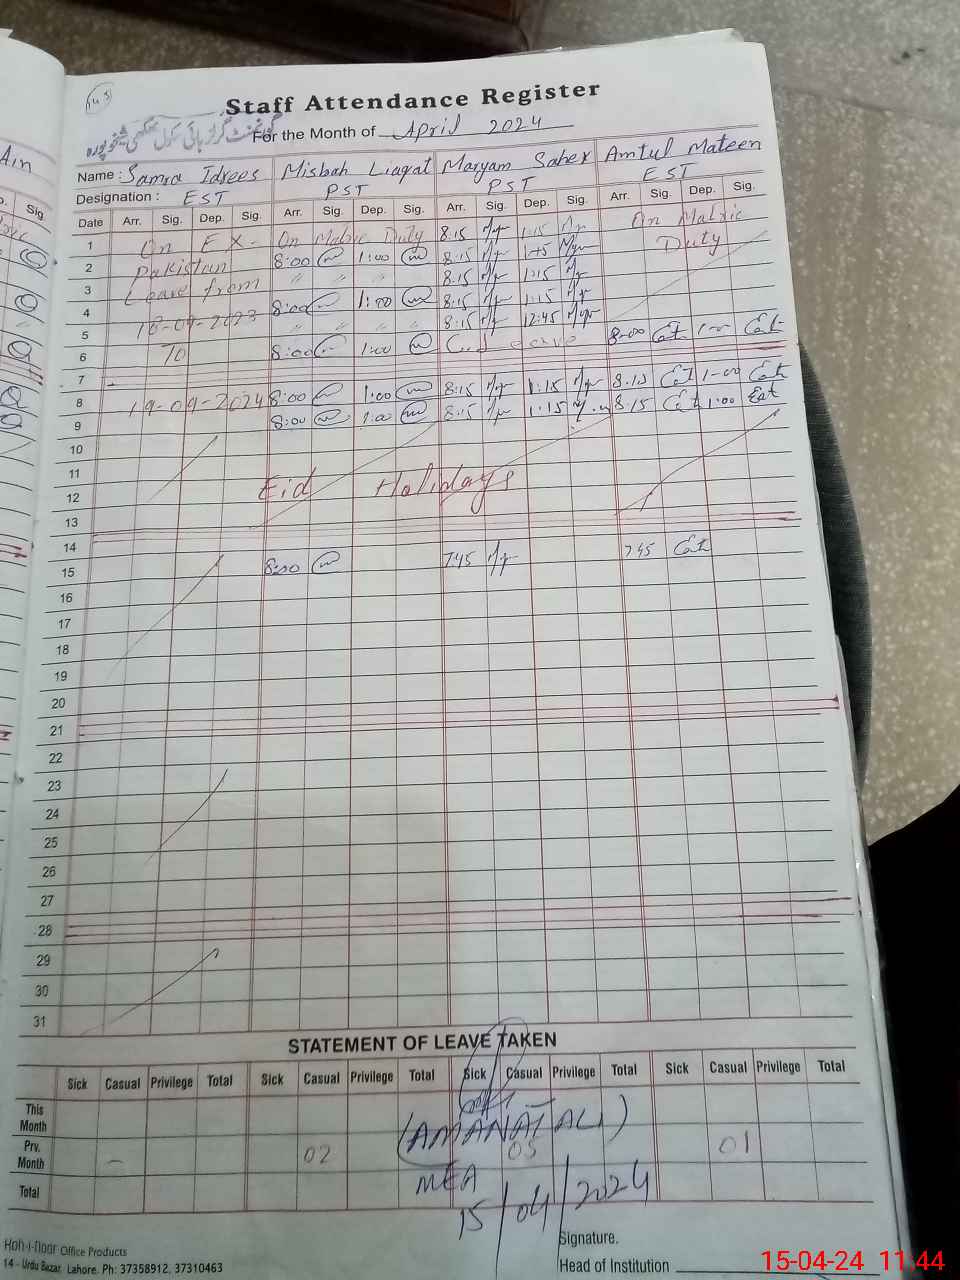 Staff Attendance Register
گورنمنٹ گرلز ہائی سکول بھکھی شیخوپورہ
For the Month of April 2024
Name : Samra Idrees Misbah Liaqat Maryam Saher Amtul Mateen
Designation : EST PST PST EST
Date Arr. Sig. Dep. Sig. Arr. Sig. Dep. Sig. Arr. Sig. Dep. Sig. Arr. Sig. Dep. Sig.
1 On EX- On Matric Duty 8:15 1:15 On Matric
2 Pakistan 8:00 1:00 8:15 1:15 Duty
3 Leave from " " " " 8:15 1:15
4 8:00 1:00 8:15 1:15
5 18-09-2023 " " " " 8:15 12:45
6 To 8:00 1:00 8:00 1-00
7
8 19-09-2024 8:00 1:00 8:15 1:15 8:15 1-00
9 8:00 1:00 8:15 1:15 8:15 1:00
10
11
12 Eid Holidays
13
14
15 8:00 7:45 7:45
16
17
18
19
20
21
22
23
24
25
26
27
28
29
30
31
STATEMENT OF LEAVE TAKEN
Sick Casual Privilege Total Sick Casual Privilege Total Sick Casual Privilege Total Sick Casual Privilege Total
This Month
(AMANAT ALI)
Prv. Month – 02 05 01
MEA
Total
15/04/2024
Signature.
Koh-i-noor Office Products
14 - Urdu Bazar, Lahore. Ph: 37358912, 37310463
Head of Institution
15-04-24 11:44